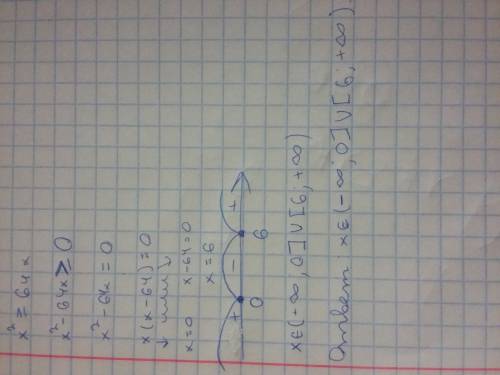 x² ≥ 64x
x² - 64x ≥ 0
x² - 64x = 0
x(x - 64) = 0
↓ или ↓
x = 0 x - 64 = 0
x = 6
+ - +
0 6
x∈(-∞, 0]∪[6; +∞)
Ответ: x∈(-∞, 0]∪[6; +∞).